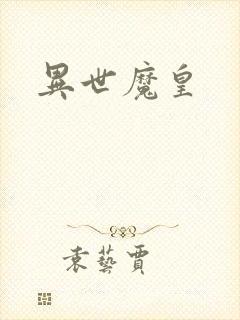 異世魔皇
袁藝賈